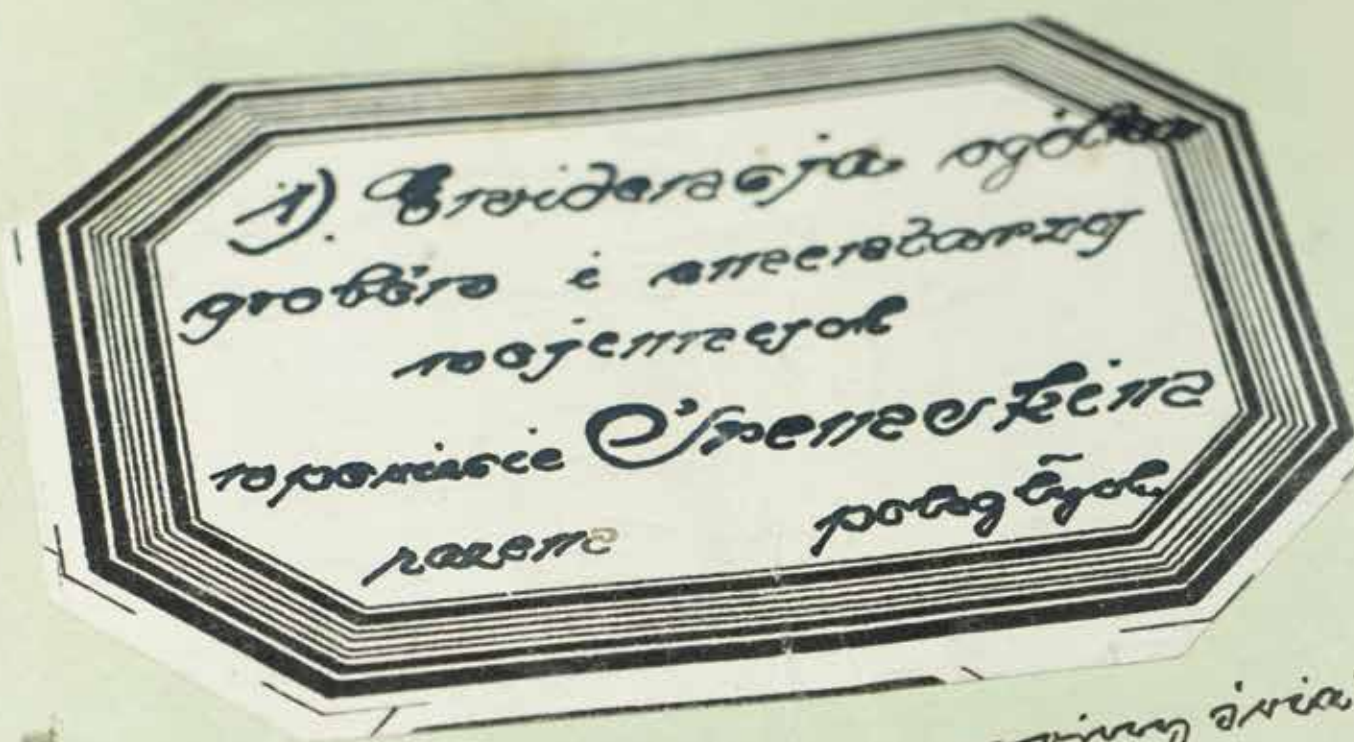 1). Ewidencja ogólna
grobów i cmentarzy
wojennych
w powiecie Śremskim
razem poległych